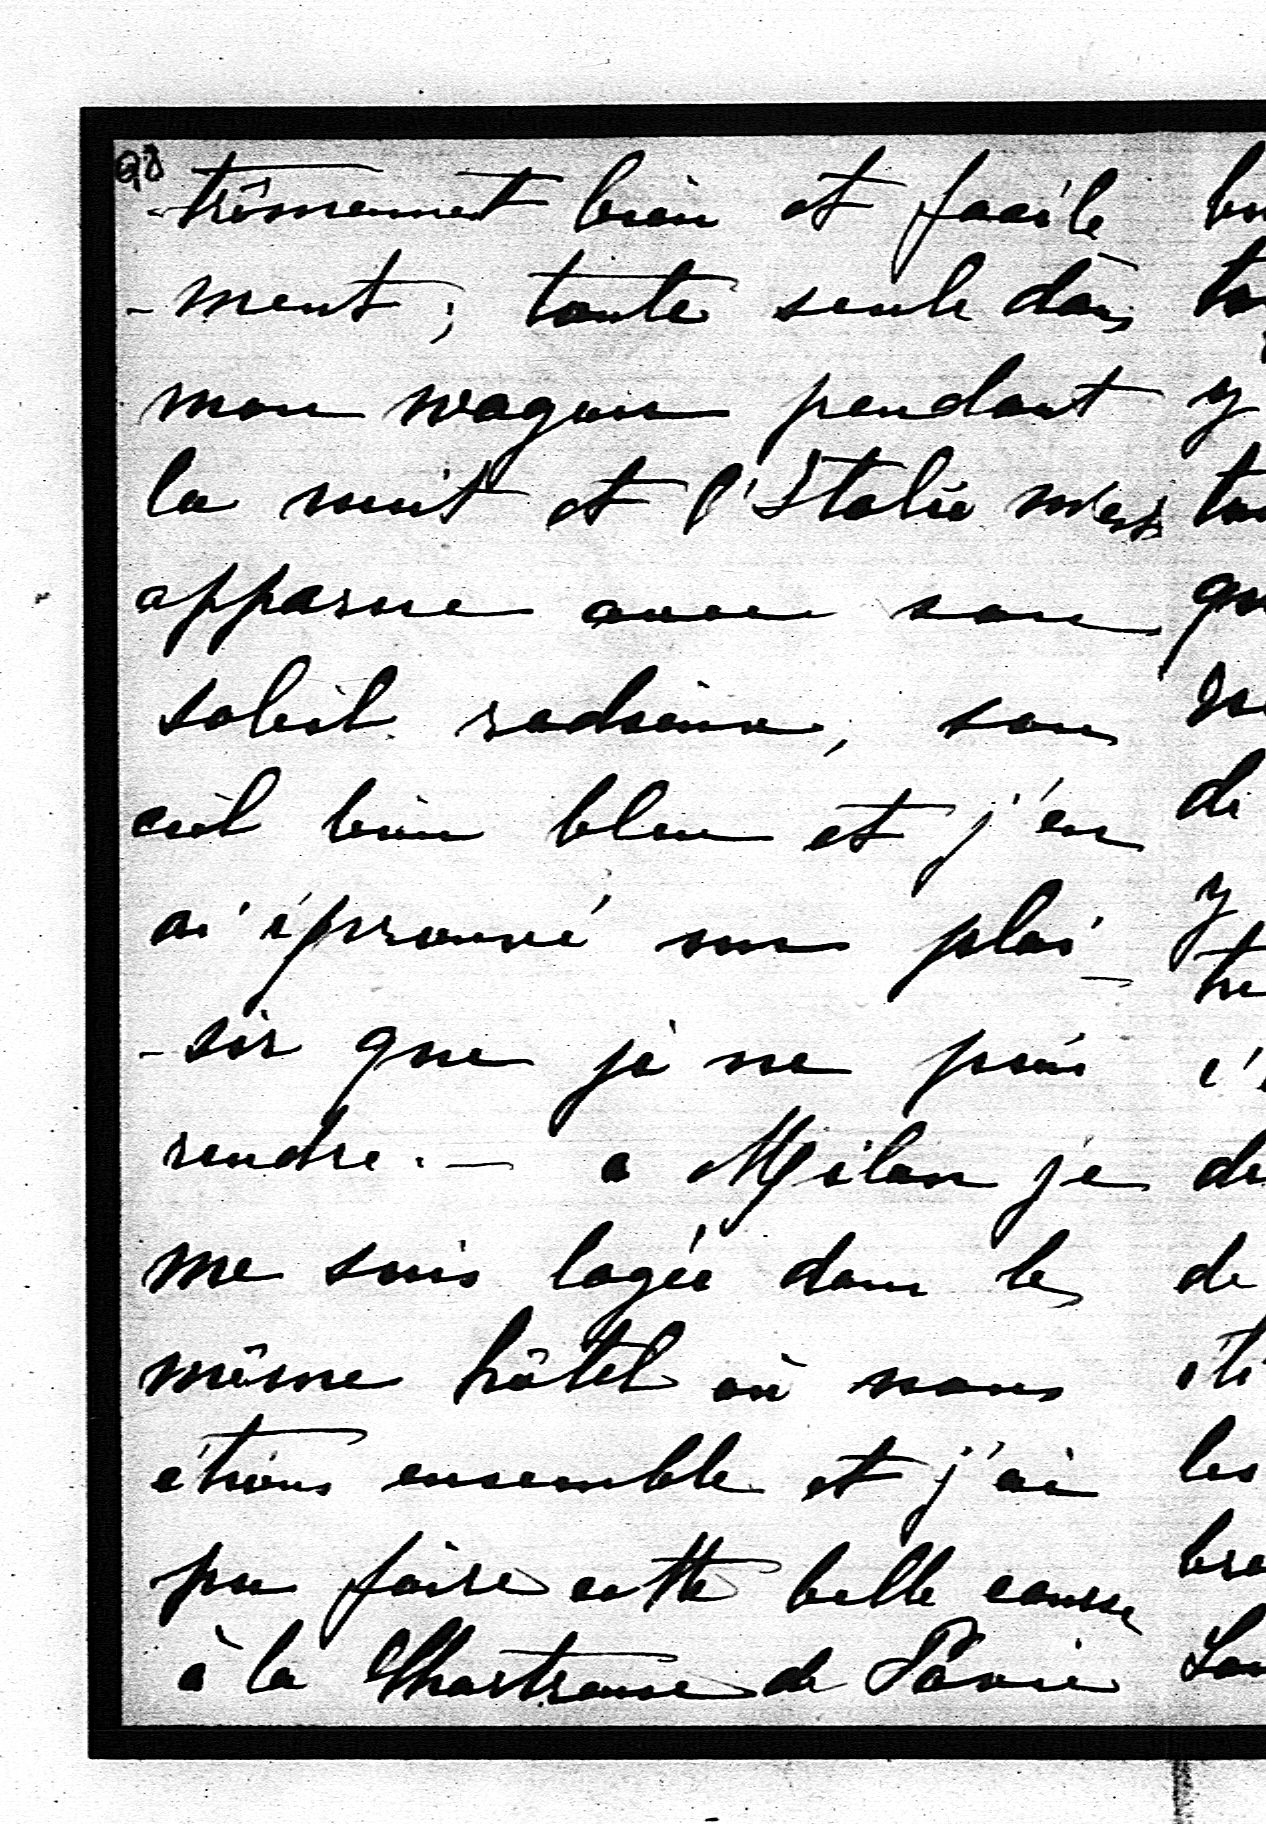 -trêmement bien et facile
-ment ; toute seule dans
mon wagon pendant
la nuit et l'Italie m'est
apparue avec son
soleil radieux, son
ciel bien bleu et j'en
ai éprouvé un plai
-sir que je ne puis
rendre. — a Milan je
me suis logée dans le
même hôtel où nous
étions ensemble et j'ai
pu faire cette belle course
à la Chartreuse de Pavie
y
di
y
de
les